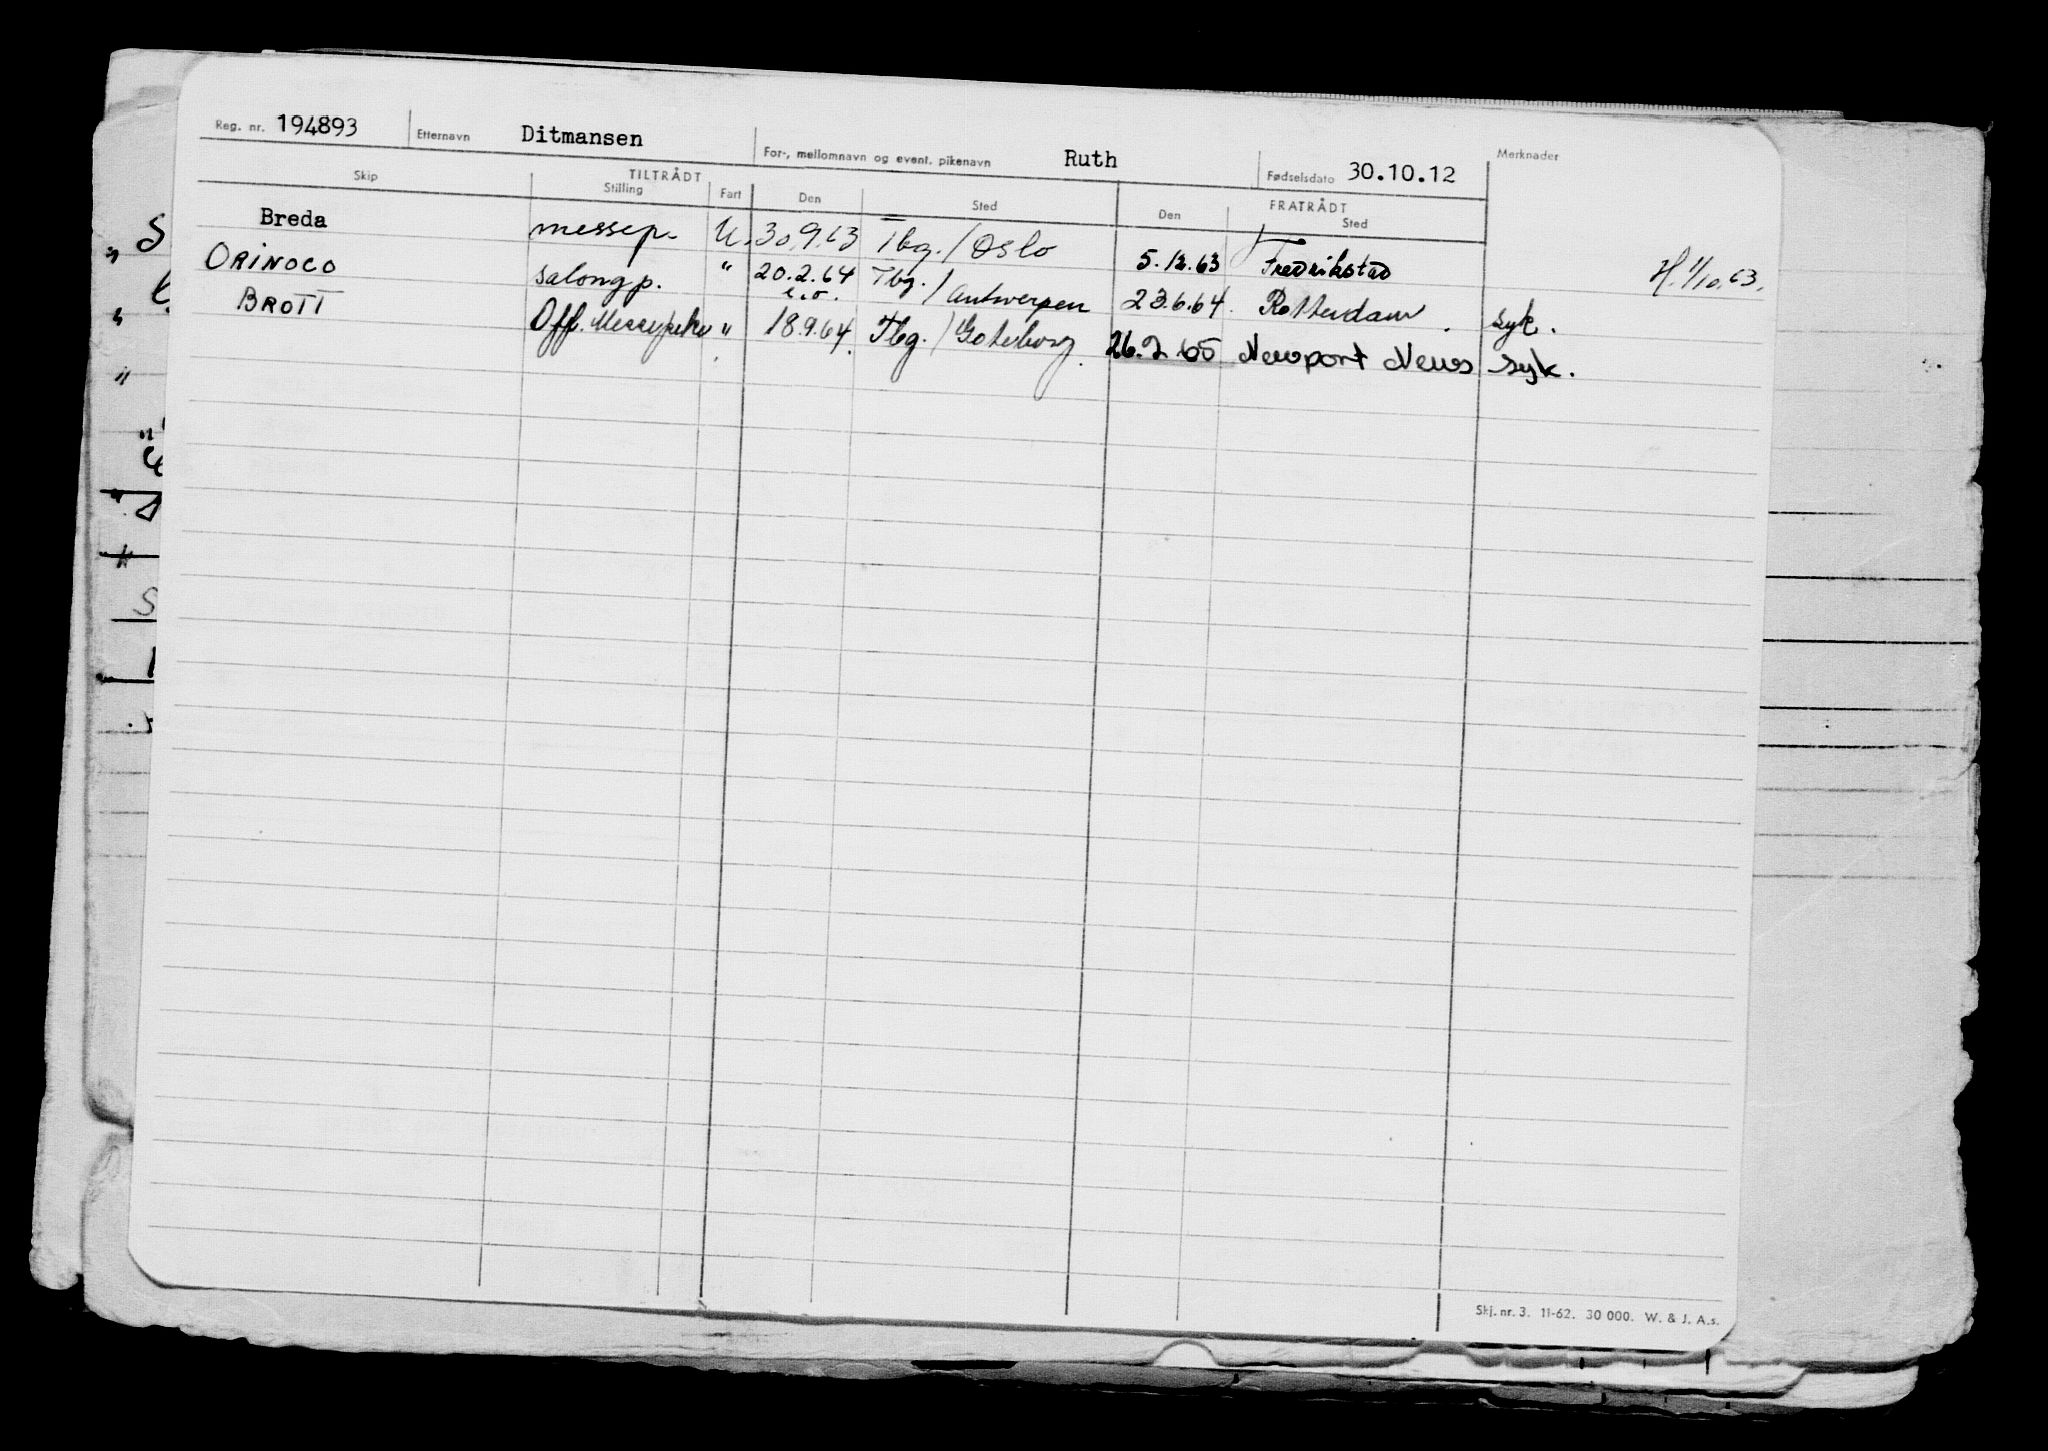 Reg. nr. 194893 Etternavn Ditmansen For-, mellomnavn og event. pikenavn Ruth Fødselsdato 30.10.12 Merknader
TILTRÅDT FRATRÅDT
Skip Stilling Fart Den Sted Den Sted
Breda messep. U. 30.9.63 Tbg. / Oslo 5.12.63 Fredrikstad H. 1/10.63.
ORINOCO salongp. " 20.2.64 Tbg. / Antwerpen 23.6.64. Rotterdam. syk.
e.o.
BROTT Off. Messepike " 18.9.64. Tbg. / Goteborg. 26.2.65 Newport News syk.
Skj. nr. 3. 11-62. 30 000. W. & J. A.s.